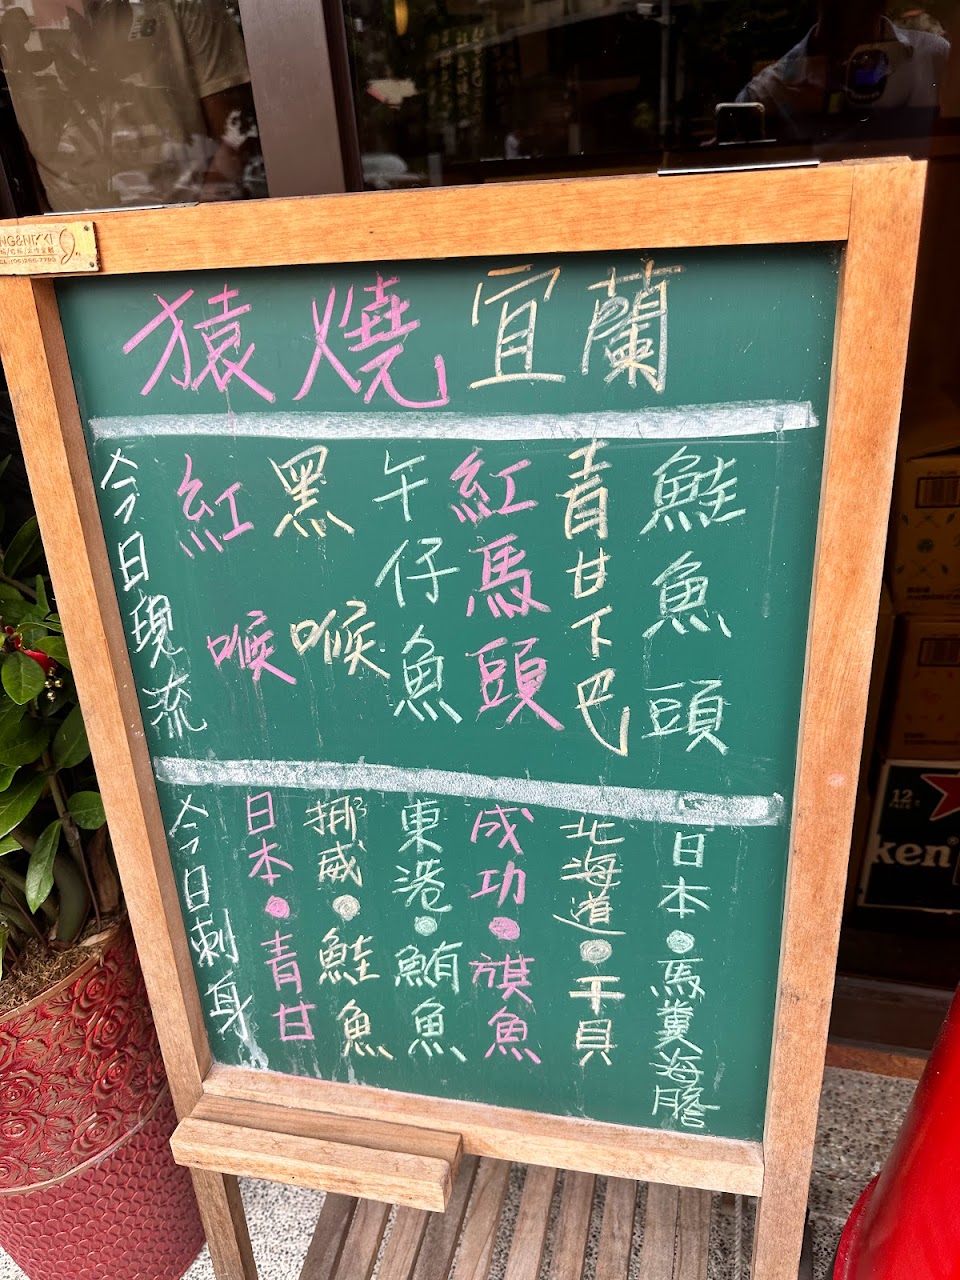 猿燒宜蘭
今日現流
紅喉
黑喉
午仔魚
紅馬頭
青甘下巴
鮭魚頭
今日刺身
日本●青甘
挪威●鮭魚
東港●鮪魚
成功●旗魚
北海道●干貝
日本●馬糞海膽
12
ken